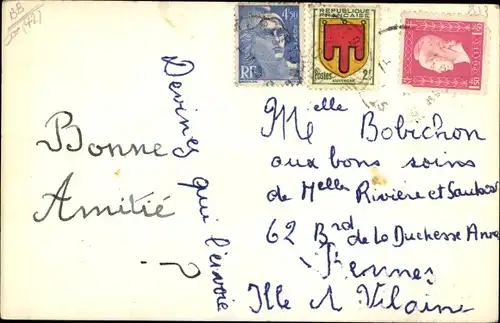 BB
4F50
RF
REPUBLIQUE FRANÇAISE
Postes 2F
AUVERGNE
1F50
Bonne
Amitié
Devinez qui l'envoie
?
Melle Bobichon
aux bons soins
de Melles Rivière et
62 Brd de La Duchesse Anne
Rennes
Ille et Vilaine